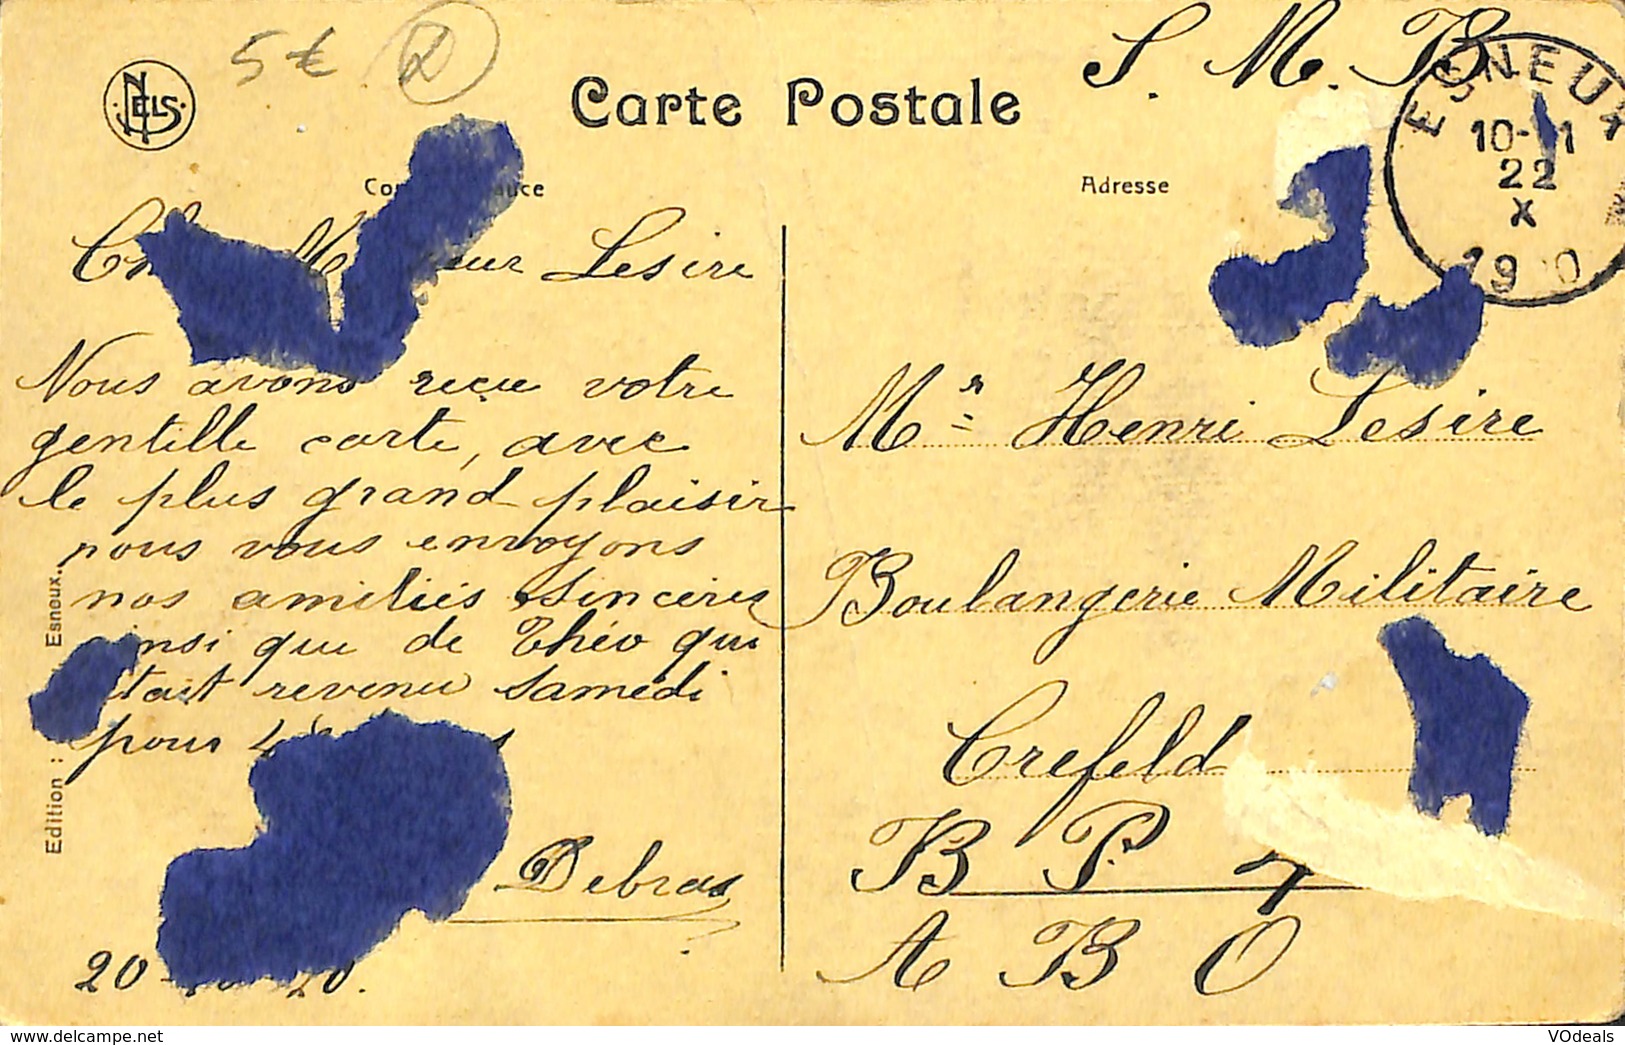 5 €
NELS
Carte Postale
S. M. B
ESNEUX
10-11
22
X
19 0
Adresse
Lesire
Nous avons reçu votre
gentille carte, avec
le plus grand plaisir
nous vous envoyons
nos amitiés sincères
que de Théo qui
revenu samedi
pour
Debras
20
20.
Edition : Esnoux.
Mr Henri Lesire
Boulangerie Militaire
Crefeld
B P 7
A B O
delcampe.net
VOdeals